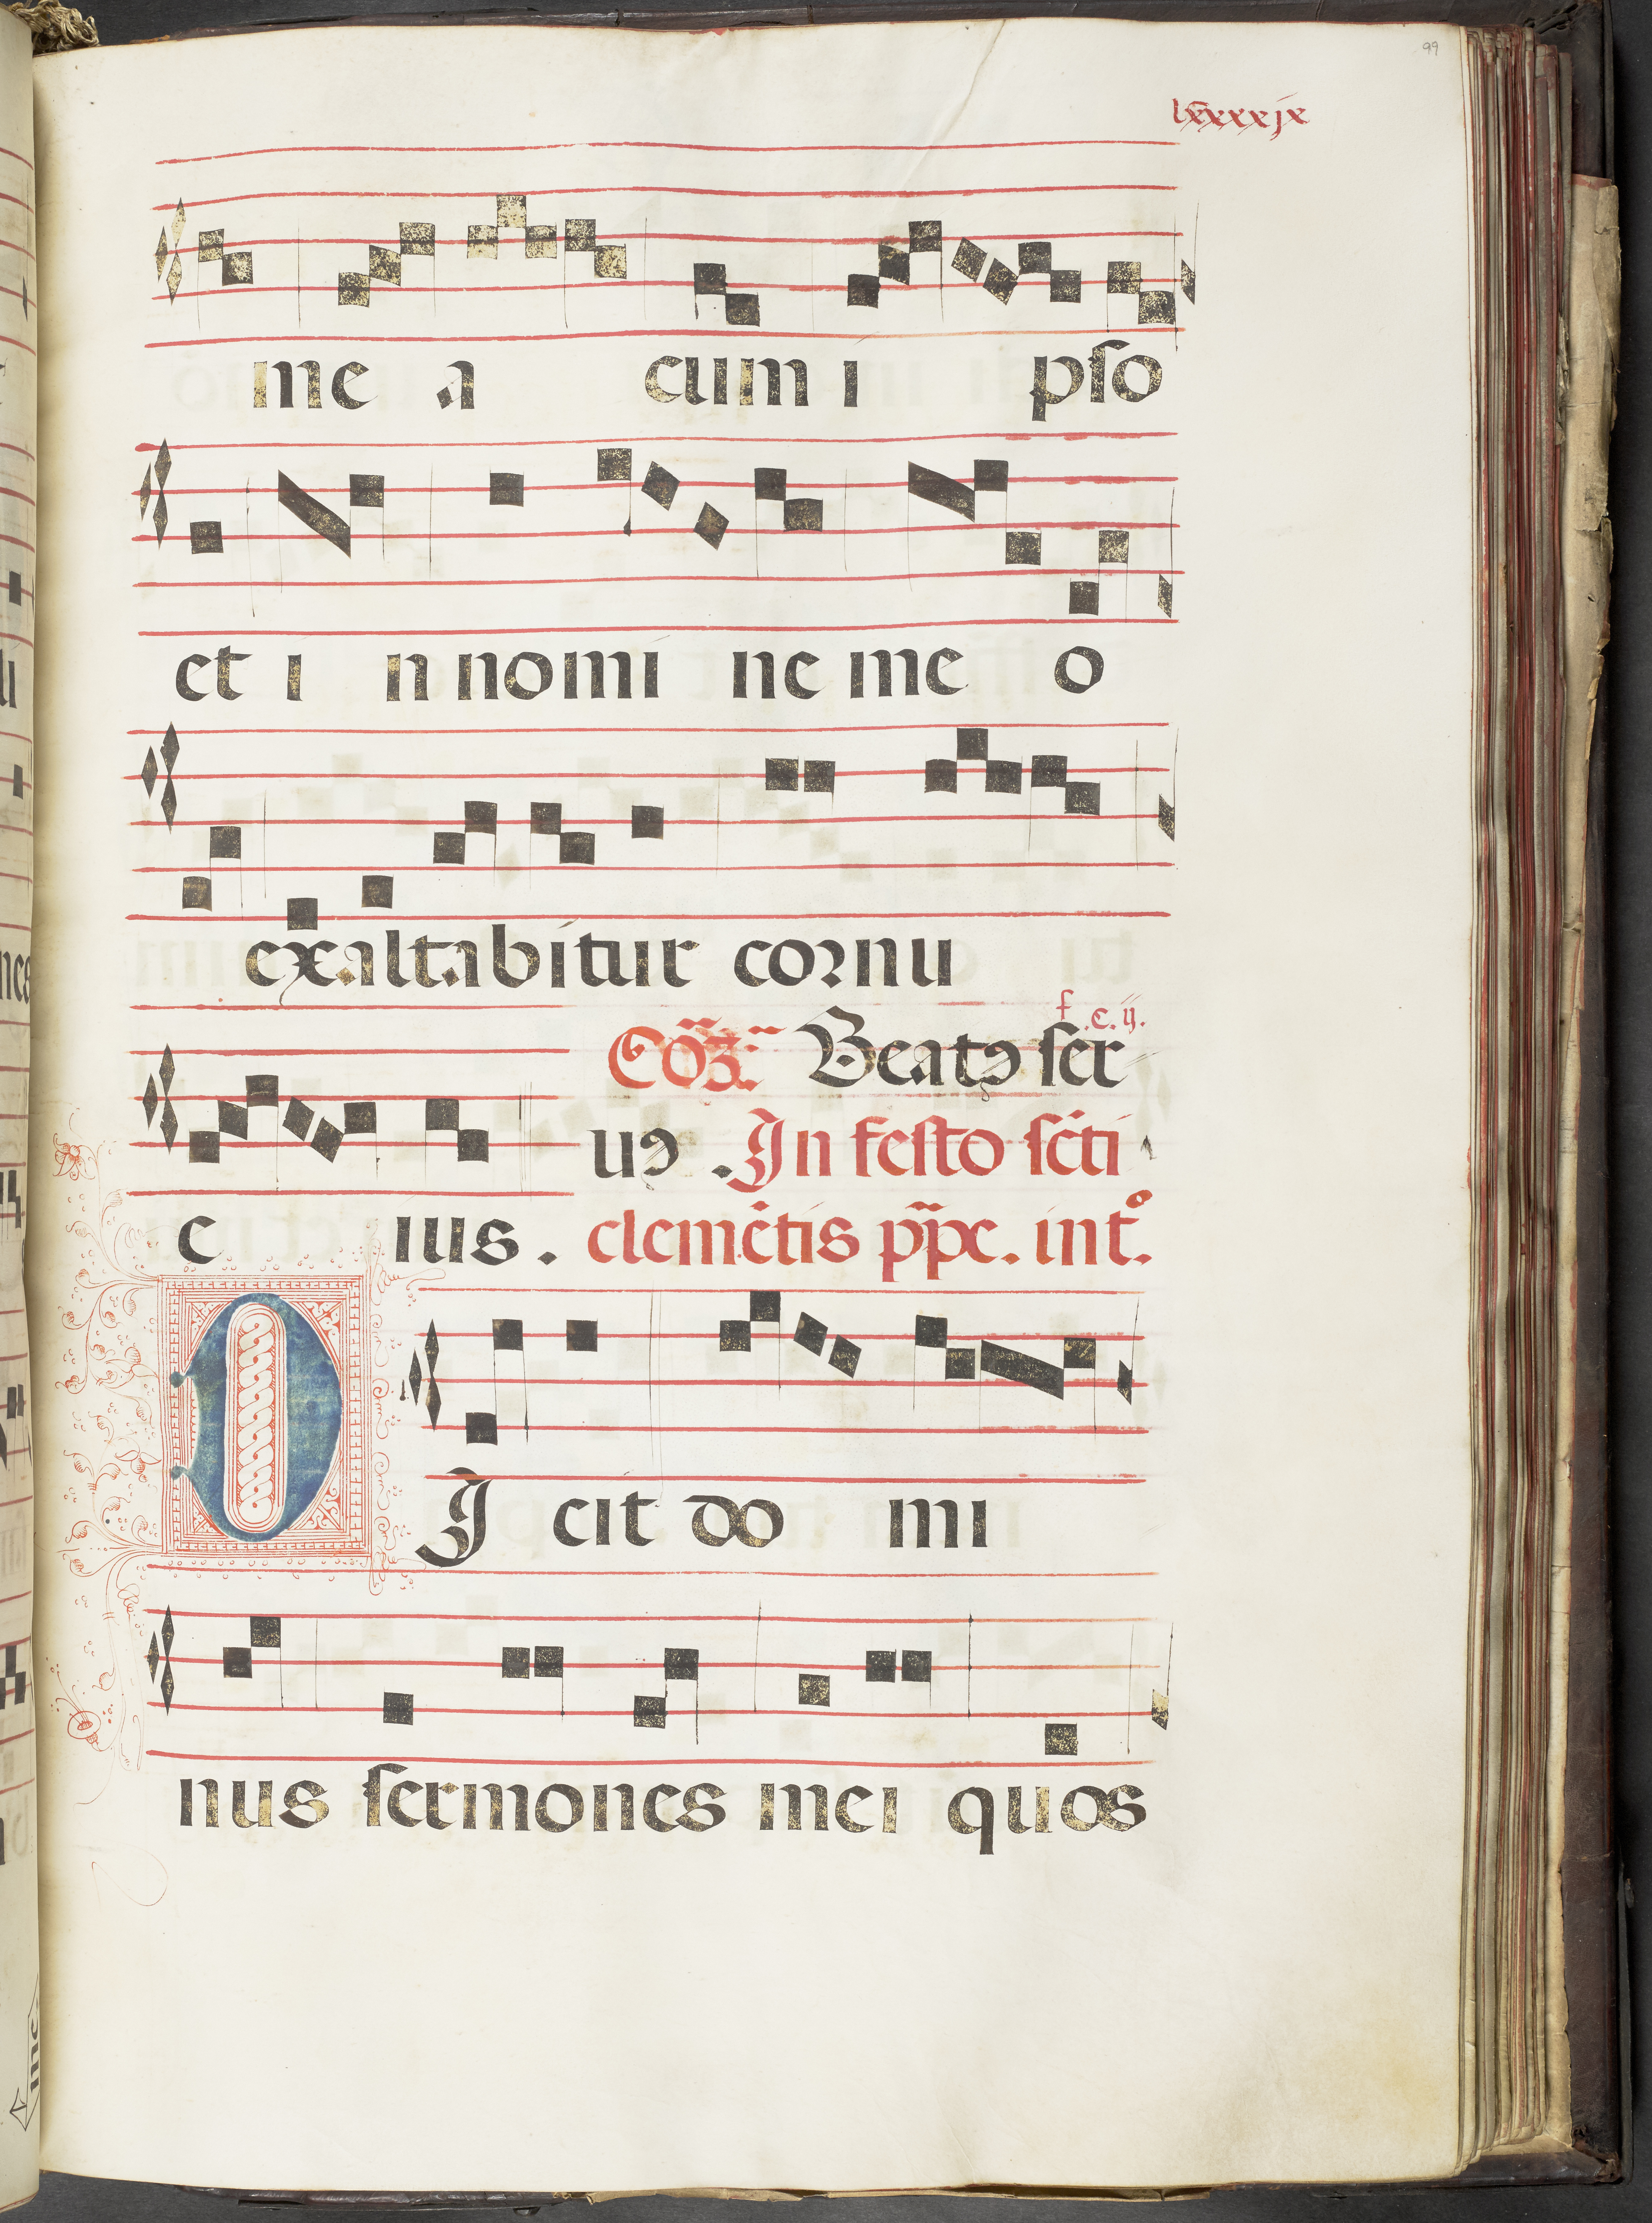 99
lxxxxjx
me a cum i pſo
et i n nomi ne me o
exaltabitur coꝛnu
f. c. ij.
Cō̃ꝫ: Beatꝰ ſer
uꝰ . In feſto ſc̄ti
e ius . clemētis pp̄e. intº.
DI cit do mi
nus ſermones mei quos